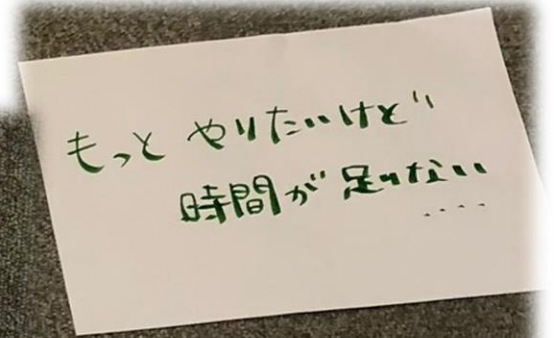 もっと やりたいけど
時間が 足りない
....